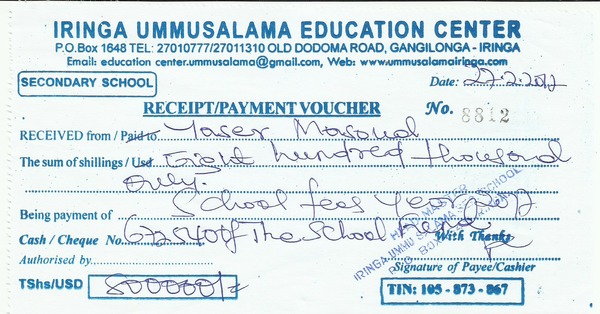 IRINGA UMMUSALAMA EDUCATION CENTER
P.O.Box 1648 TEL: 27010777/27011310 OLD DODOMA ROAD, GANGILONGA - IRINGA
Email: education center.ummusalama@gmail.com, Web: www.ummusalamairinga.com
SECONDARY SCHOOL
Date: 27.2.2012
RECEIPT/PAYMENT VOUCHER No. 8812
RECEIVED from / Paid to Yaser Masoud
The sum of shillings / Usd Eight hundred thousand
only.
School fees Year 2012
Being payment of
Cash / Cheque No. of The School
With Thanks
Authorised by
Signature of Payee/Cashier
TShs/USD 800000/=
TIN: 105 - 873 - 867